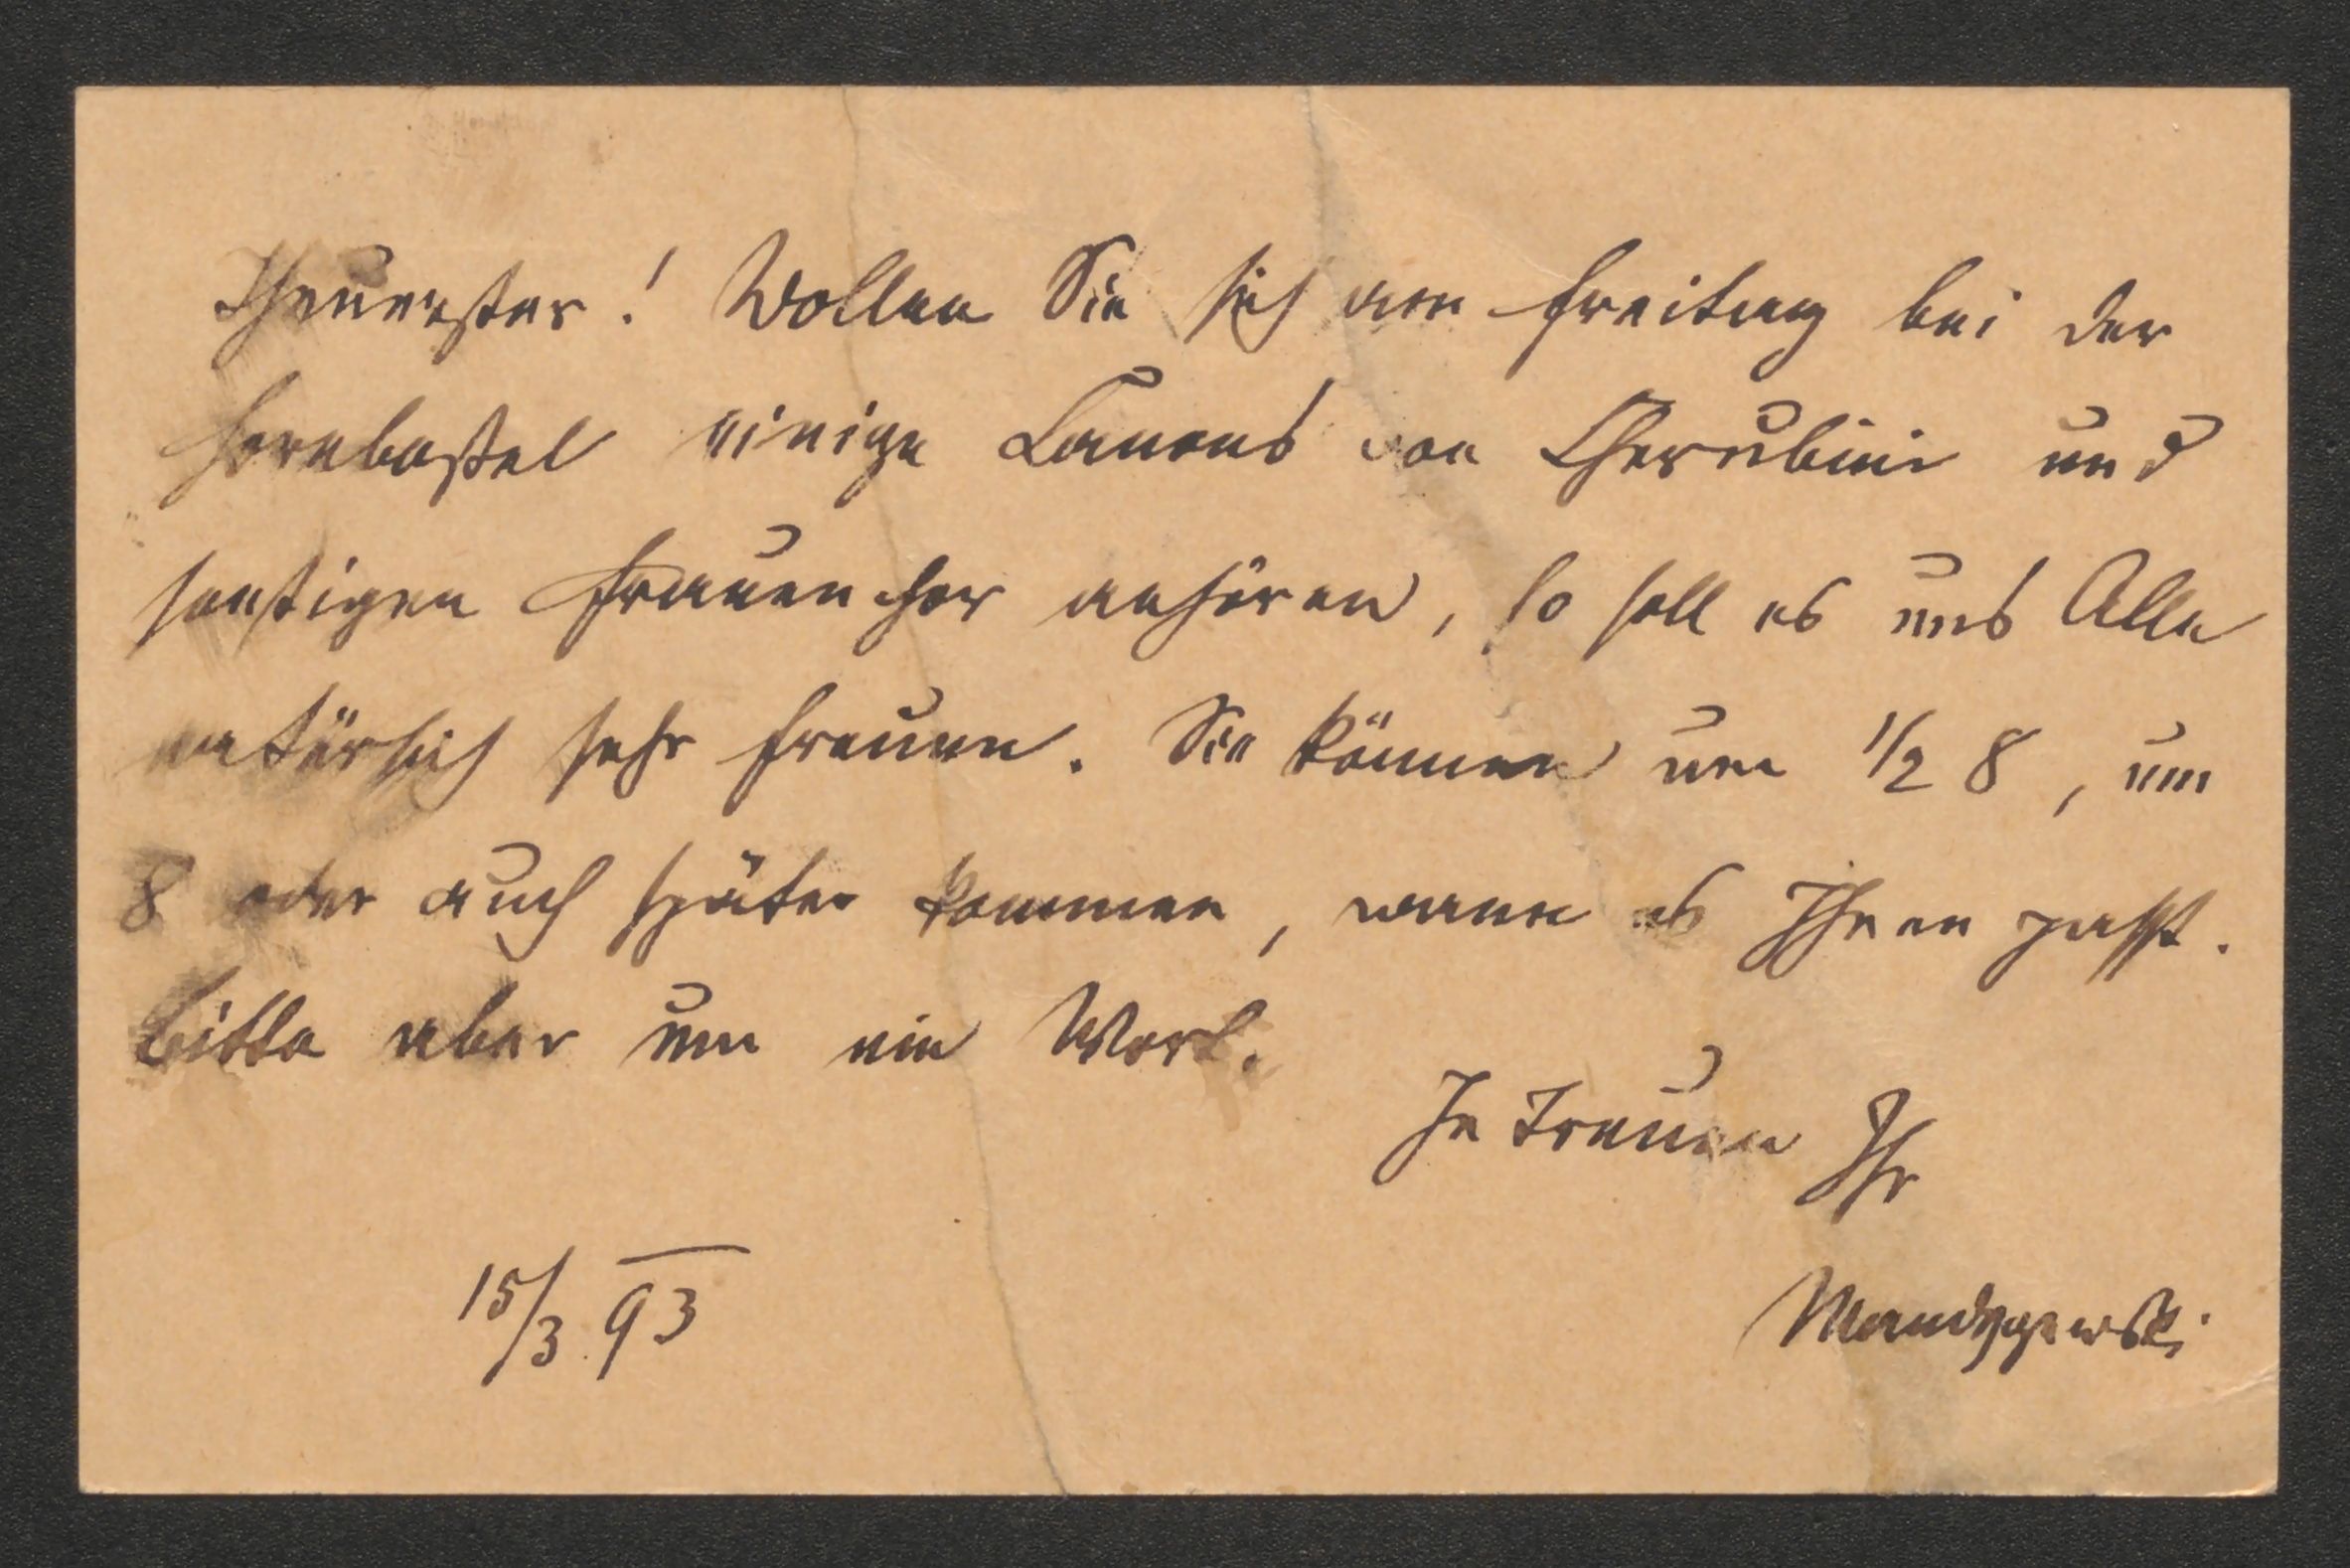 Theuerster! Wollen Sie sich am Freitag bei der
Hornbostel einige Canons von Cherubini und
sonstigen Frauenchor anhören, so soll es uns Alle
natürlich sehr freuen. Sie können um 1/2 8, um
8 oder auch später kommen, wann es Ihnen passt.
Bitte aber um ein Wort.
In Treuen Ihr
Mandyczewski
15/3 93